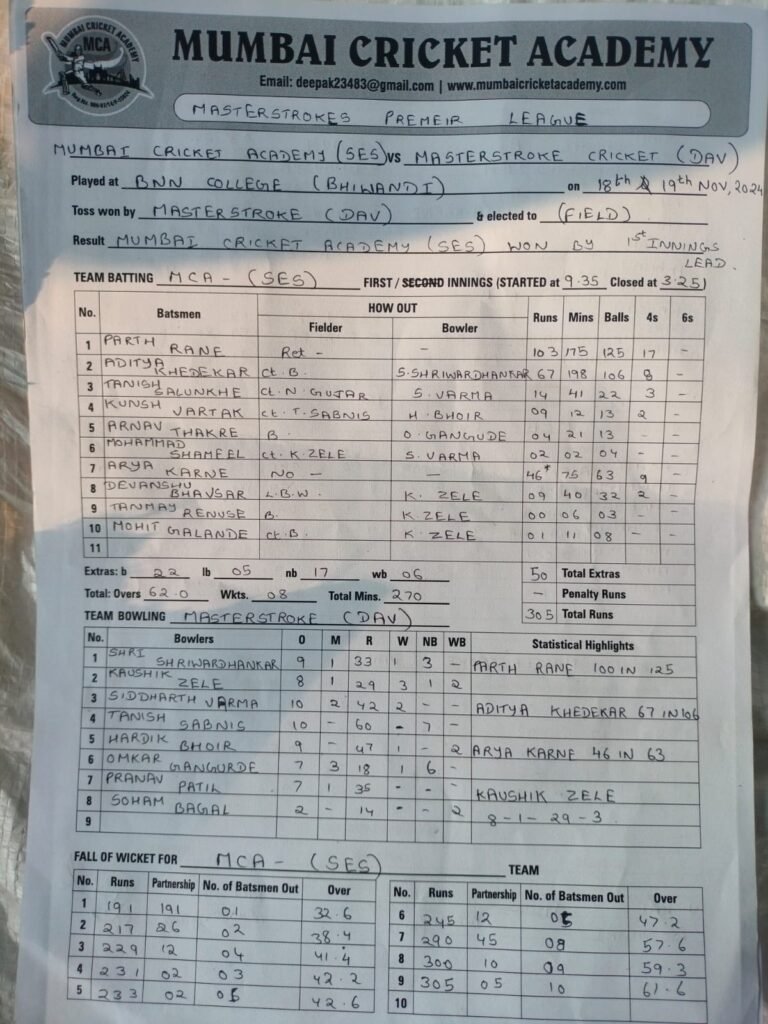 MUMBAI CRICKET ACADEMY
MCA
MUMBAI CRICKET ACADEMY
Email: deepak23483@gmail.com | www.mumbaicricketacademy.com
MASTERSTROKES PREMEIR LEAGUE
MUMBAI CRICKET ACADEMY (SES) vs MASTERSTROKE CRICKET (DAV)
Played at BNN COLLEGE (BHIWANDI) on 18th & 19th NOV, 2024
Toss won by MASTERSTROKE (DAV) & elected to (FIELD)
Result MUMBAI CRICKET ACADEMY (SES) WON BY 1st INNINGS LEAD.
TEAM BATTING MCA - (SES) FIRST / SECOND INNINGS (STARTED at 9.35 Closed at 3.25)
No. Batsmen HOW OUT Runs Mins Balls 4s 6s
Fielder Bowler
1 PARTH RANE Ret - - 103 175 125 17 -
2 ADITYA KHEDEKAR ct. B. S. SHRIWARDHANKAR 67 198 106 8 -
3 TANISH SALUNKHE ct. N. GUJAR S. VARMA 14 41 22 3 -
4 KUNSH VARTAK ct. T. SABNIS H. BHOIR 09 12 13 2 -
5 ARNAV THAKRE B. O. GANGUDE 04 21 13 - -
6 MOHAMMAD SHAMEEL ct. K. ZELE S. VARMA 02 02 04 - -
7 ARYA KARNE NO - - 46* 75 63 9 -
8 DEVANSHU BHAVSAR L.B.W. K. ZELE 09 40 32 2 -
9 TANMAY RENUSE B. K. ZELE 00 06 03 - -
10 MOHIT GALANDE ct. B. K. ZELE 01 11 08 - -
11
Extras: b 22 lb 05 nb 17 wb 06 50 Total Extras
Total: Overs 62.0 Wkts. 08 Total Mins. 270 - Penalty Runs
305 Total Runs
TEAM BOWLING MASTERSTROKE (DAV)
No. Bowlers O M R W NB WB Statistical Highlights
1 SHRI SHRIWARDHANKAR 9 1 33 1 3 - PARTH RANE 100 IN 125
2 KAUSHIK ZELE 8 1 29 3 1 2
3 SIDDHARTH VARMA 10 2 42 2 - - ADITYA KHEDEKAR 67 IN 106
4 TANISH SABNIS 10 - 60 - 7 -
5 HARDIK BHOIR 9 - 47 1 - 2 ARYA KARNE 46 IN 63
6 OMKAR GANGURDE 7 3 18 1 6 -
7 PRANAV PATIL 7 1 35 - - - KAUSHIK ZELE
8 SOHAM BAGAL 2 - 14 - - 2 8-1-29-3.
9
FALL OF WICKET FOR MCA - (SES) TEAM
No. Runs Partnership No. of Batsmen Out Over
1 191 191 01 32.6
2 217 26 02 38.4
3 229 12 04 41.4
4 231 02 03 42.2
5 233 02 05 42.6
No. Runs Partnership No. of Batsmen Out Over
6 245 12 06 47.2
7 290 45 08 57.6
8 300 10 09 59.3
9 305 05 10 61.6
10